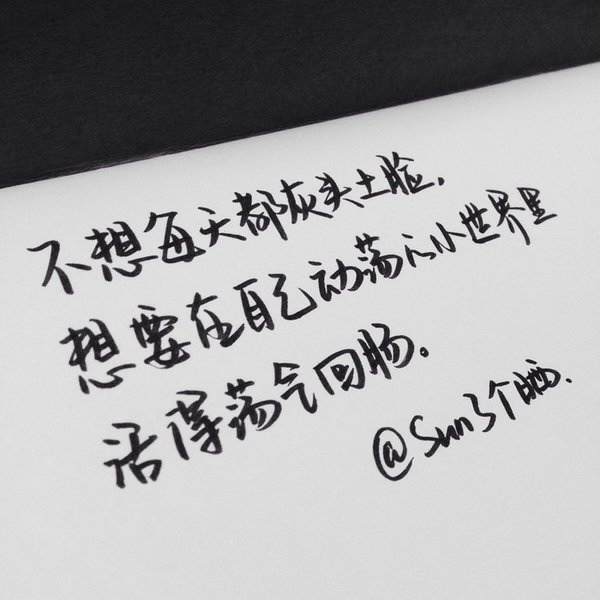 不想每天都灰头土脸,
想要在自己动荡的小世界里
活得荡气回肠。
@Sun了个晒.